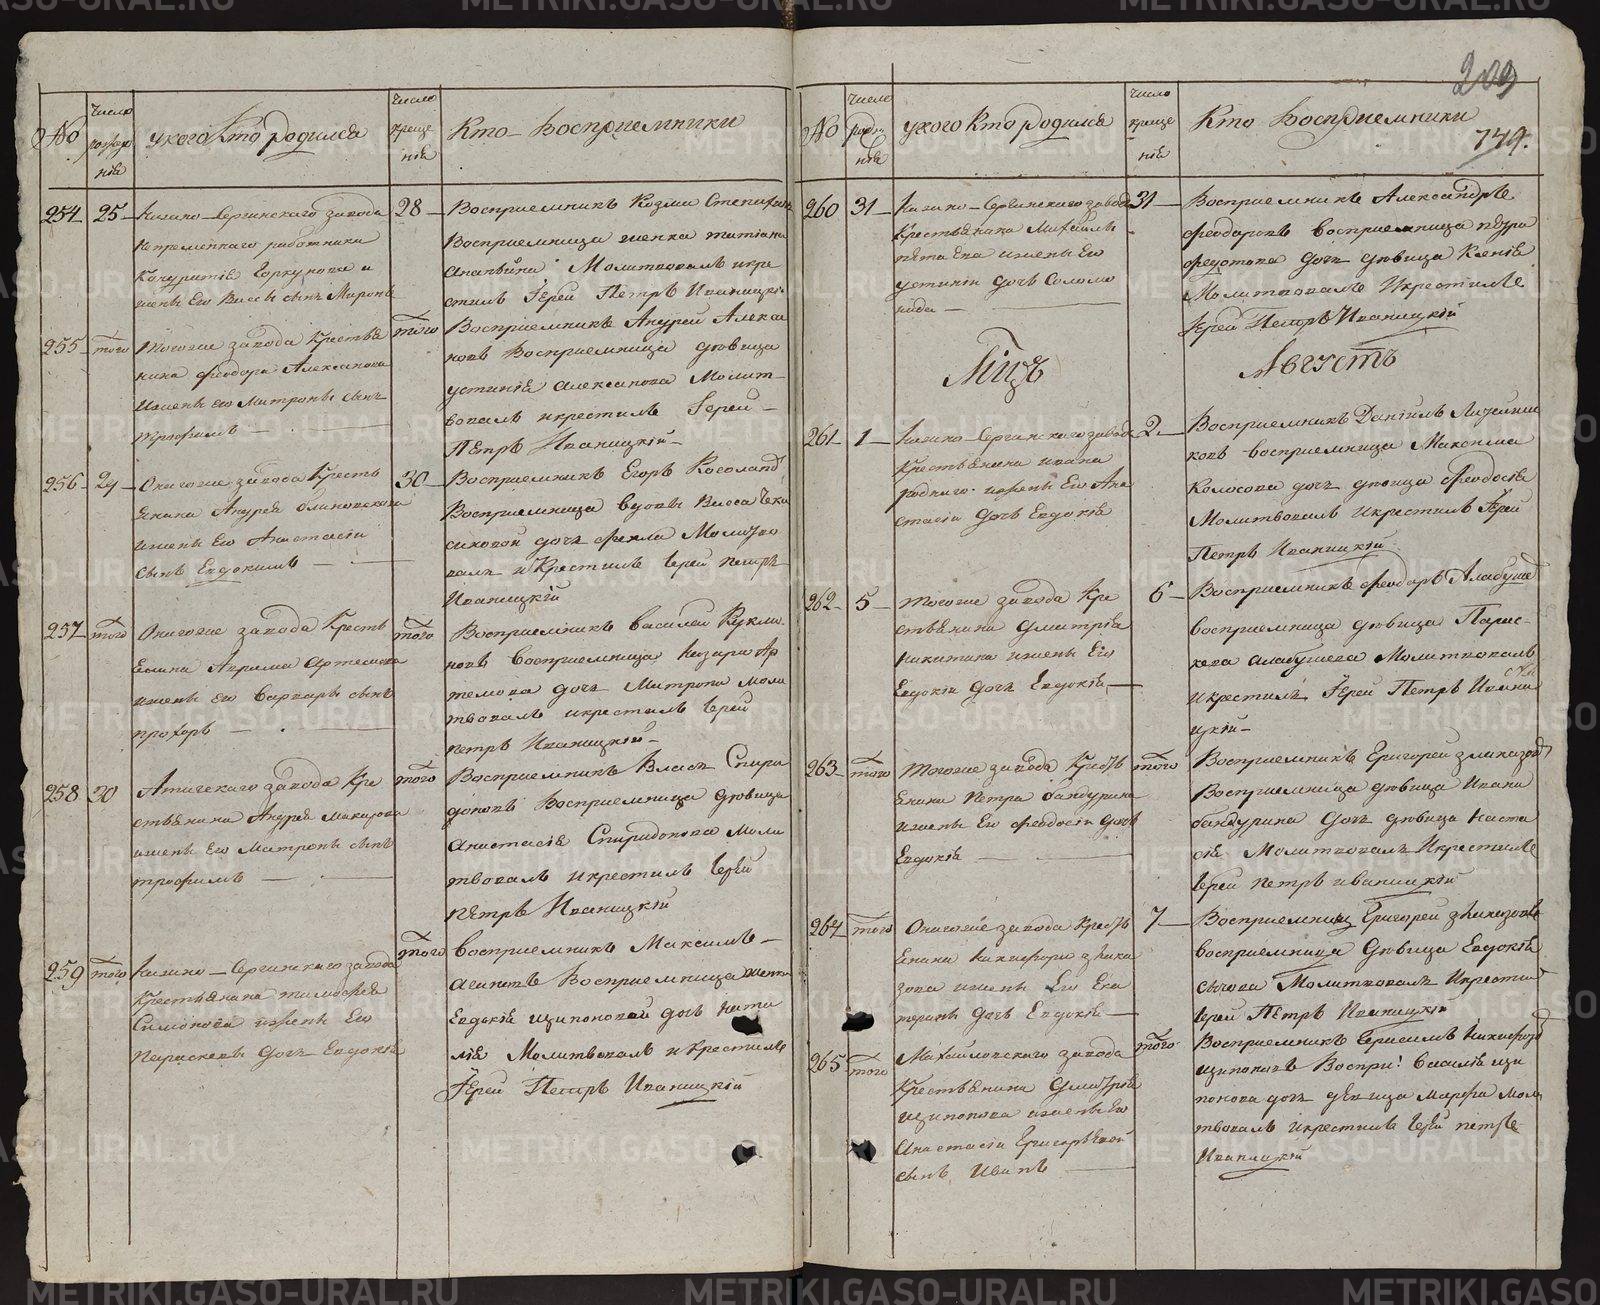 209
749.
No
Число рожденія
у кого кто родился
Число крещенія
Кто Восприемники
254 25 Нижно-Сергинскаго завода
непременнаго работника
жены Его Васы сынъ Миронъ
28
Восприемникъ Козма
Восприемница женка татіана
Молитвовалъ и кре
стилъ Іерей Петръ Иваницкій
255 того Тогоже завода Крестья
нина Феодора Алексанова
и жены его Матроны сынъ
Трофимъ
того
Восприемникъ Андрей Алекса
новъ Восприемница дѣвица
устинія алексанова Молит
вовалъ и крестилъ Іерей
Петръ Иваницкій
256 29 Онагоже завода Кресть
янина Андрея
и жены Его Анастасіи
сынъ Евдокимъ
30
Восприемникъ Егоръ
Восприемница вдовы
дочь Фекла Молитво
валъ и Крестилъ Іерей Петръ
Иваницкій
257 того Онагоже завода Кресть
янина Аврама Артемова
и жены его Варвары сынъ
прохоръ
того
Восприемникъ василей
новъ Восприемница Назара Ар
темова дочь Матрона моли
твовалъ и крестилъ Іерей
петръ Иваницкій
258 30 Атигскаго завода Кре
стьянина Андрея Макарова
и жены Его Матроны сынъ
трофимъ
того
Восприемникъ Власъ Спири
доновъ Восприемница дѣвица
Анастасія Спиридонова Моли
твовалъ и крестилъ Іерей
Петръ Иваницкій
259 того Нижно-Сергинскаго завода
Крестьянина тимофея
Симонова и жены Его
Параскевы дочь Евдокія
того
Восприемникъ Максимъ
Восприемница женка
Евдокія щипоновой дочь Ната
лія Молитвовалъ и крестилъ
Іерей Петръ Иваницкій
No
Число рожденія
у кого кто родился
Число крещенія
Кто Восприемники
260 31 Нижно-Сергинскаго завода
Крестьянина Михаила
и жены Его
устиніи дочь Соломо
нида
31
Восприемникъ Александръ
феодоровъ восприемница
дочь дѣвица Ксенія
Молитвовалъ И крестилъ
Іерей Петръ Иваницкій
Мцъ Августъ
261 1 Нижно-Сергинскаго завода
Крестьянина ивана
и жены Его Ана
стасіи дочь Евдокія
2
Восприемникъ Даніилъ
ковъ восприемница Максима
Колосова дочь дѣвица Феодосія
Молитвовалъ И крестилъ Іерей
Петръ Иваницкій
262 5 тогоже завода Кре
стьянина дмитрія
Никитина и жены Его
Евдокіи дочь Евдокія
6
Восприемникъ Феодоръ Алабуше
восприемница дѣвица Парас
кева алабушева Молитвовалъ
и крестилъ Іерей Петръ Ивани
цкій
263 того тогоже завода Кресть
янина Петра бандурина
и жены Его Феодосіи дочь
Евдокія
того
Восприемникъ Григорей
Восприемница дѣвица Ивана
бандурина дочь дѣвица Наста
сія Молитвовалъ И крестилъ
Іерей петръ иваницкій
264 того Онагоже завода Кресть
янина Никифора
зова и жены Его Ека
терины дочь Евдокія
7
Восприемникъ Григорей
восприемница Дѣвица Евдокія
Молитвовалъ И крестилъ
Іерей Петръ Иваницкій
265 того Михайловскаго завода
Крестьянина Дмитрія
щипонова и жены Его
Анастасіи Григорьевой
сынъ Иванъ
того
Восприемникъ Герасимъ Никифоро
щипоновъ Воспри: Василія щи
понова дочь дѣвица Марфа моли
твовалъ и крестилъ Іерей петръ
Иваницкій
METRIKI.GASO-URAL.RU